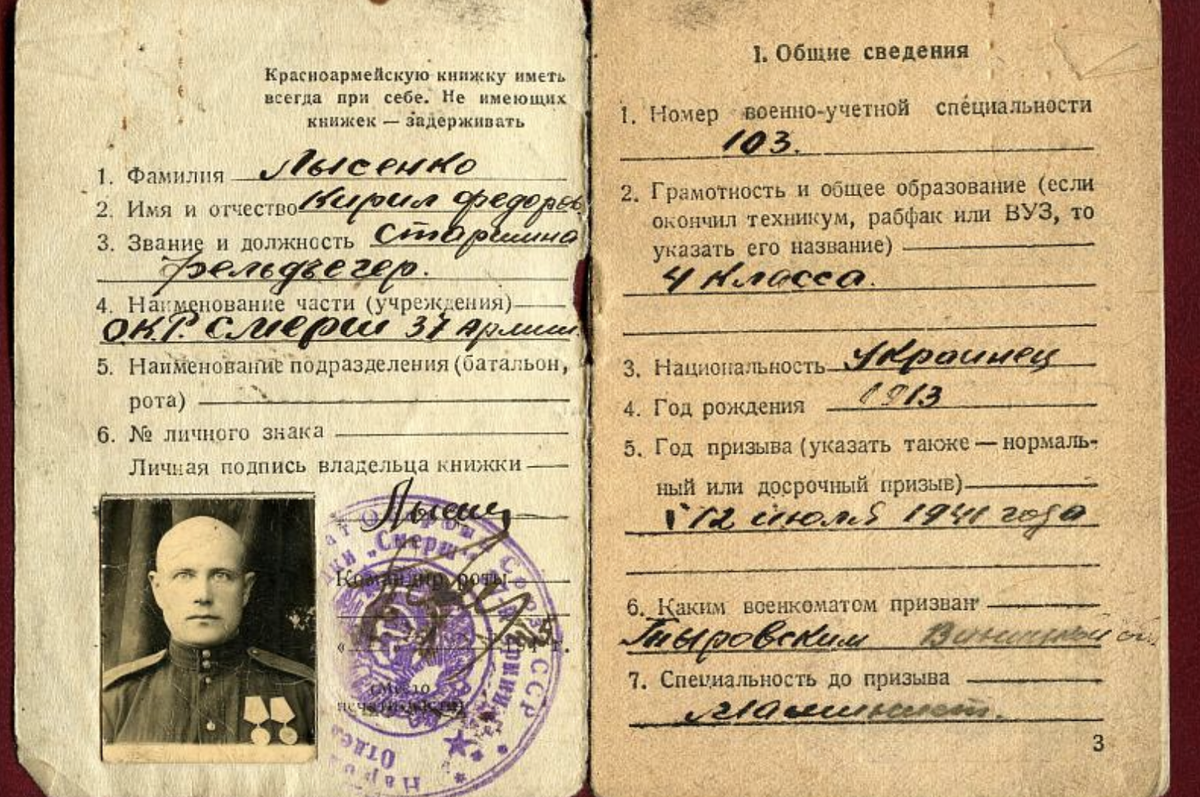 Красноармейскую книжку иметь
всегда при себе. Не имеющих
книжек — задерживать
1. Фамилия Лысенко
2. Имя и отчество Кирил Федоров
3. Звание и должность Старшина
Фельдъегер.
4. Наименование части (учреждения)
ОКР. Смерш 37 Армии.
5. Наименование подразделения (батальон,
рота)
6. № личного знака
Личная подпись владельца книжки
Командир роты
"Смерш"
СССР
I. Общие сведения
1. Номер военно-учетной специальности
103.
2. Грамотность и общее образование (если
окончил техникум, рабфак или ВУЗ, то
указать его название)
4 класса.
3. Национальность Украинец
4. Год рождения 1913
5. Год призыва (указать также — нормаль-
ный или досрочный призыв)
12 июля 1941 года
6. Каким военкоматом призван
7. Специальность до призыва
Машинист.
3